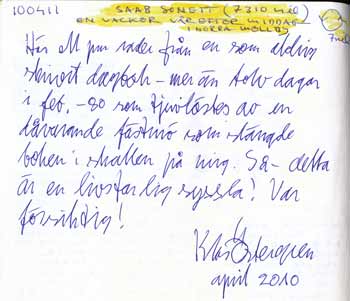 100411
SAAB SONETT (7310 mil)
EN VACKER VÅREFTERMIDDAG
I NORRA MÖLLBY
Här ett par rader från en som aldrig
skrivit dagbok – mer än tolv dagar
i feb. -80 som tjuvlästes av en
dåvarande fästmö som slängde
boken i skallen på mig. Så – detta
är en livsfarlig syssla! Var
försiktig!
Klas Östergren
april 2010